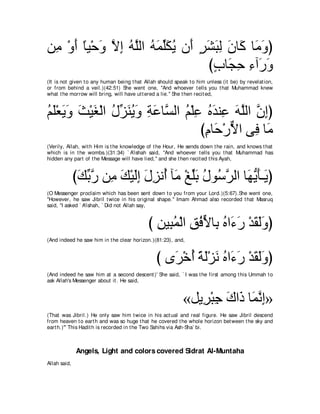 ﴿وَمَا كَانَ لِبَشَرٍ أَن يُكَلِّمَهُ اللَّهُ إِلاَّ وَحْياً أَوْ مِن
وَرَآءِ حِجَابٍ﴾
(It is not given to any human being that Allah should speak to him unless (it be) by revelation, or from behind a veil.)(42:51) She went one, "And whoever tells you that Muhammad knew what the morrow will bring, will have uttered a lie." She then recited,
﴿إِنَّ اللَّهَ عِندَهُ عِلْمُ السَّاعَةِ وَيُنَزِّلُ الْغَيْثَ وَيَعْلَمُ
مَا فِى الاٌّرْحَامِ﴾
(Verily, Allah, with Him is the knowledge of the Hour, He sends down the rain, and knows that which is in the wombs.)(31:34) `A'ishah said, "And whoever tells you that Muhammad has hidden any part of the Message will have lied," and she then recited this Ayah,
﴿يَـأَيُّهَا الرَّسُولُ بَلِّغْ مَآ أُنزِلَ إِلَيْكَ مِن رَّبِّكَ﴾
(O Messenger proclaim which has been sent down to you from your Lord.)(5:67). She went one, "However, he saw Jibril twice in his original shape." Imam Ahmad also recorded that Masruq said, "I asked `A'ishah, `Did not Allah say,
﴿وَلَقَدْ رَءَاهُ بِالاٍّفُقِ الْمُبِينِ ﴾
(And indeed he saw him in the clear horizon.)(81:23), and,
﴿وَلَقَدْ رَءَاهُ نَزْلَةً أُخْرَى ﴾
(And indeed he saw him at a second descent)' She said, `I was the first among this Ummah to ask Allah's Messenger about it. He said,
«إِنَّمَا ذَاكَ جِبْرِيل»
(That was Jibril.) He only saw him twice in his actual and real figure. He saw Jibril descend from heaven to earth and was so huge that he covered the whole horizon between the sky and earth.)'" This Hadith is recorded in the Two Sahihs via Ash-Sha`bi.
Angels, Light and colors covered Sidrat Al-Muntaha
Allah said,